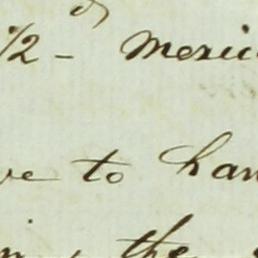 1/2 - Mexic
ve to han
the